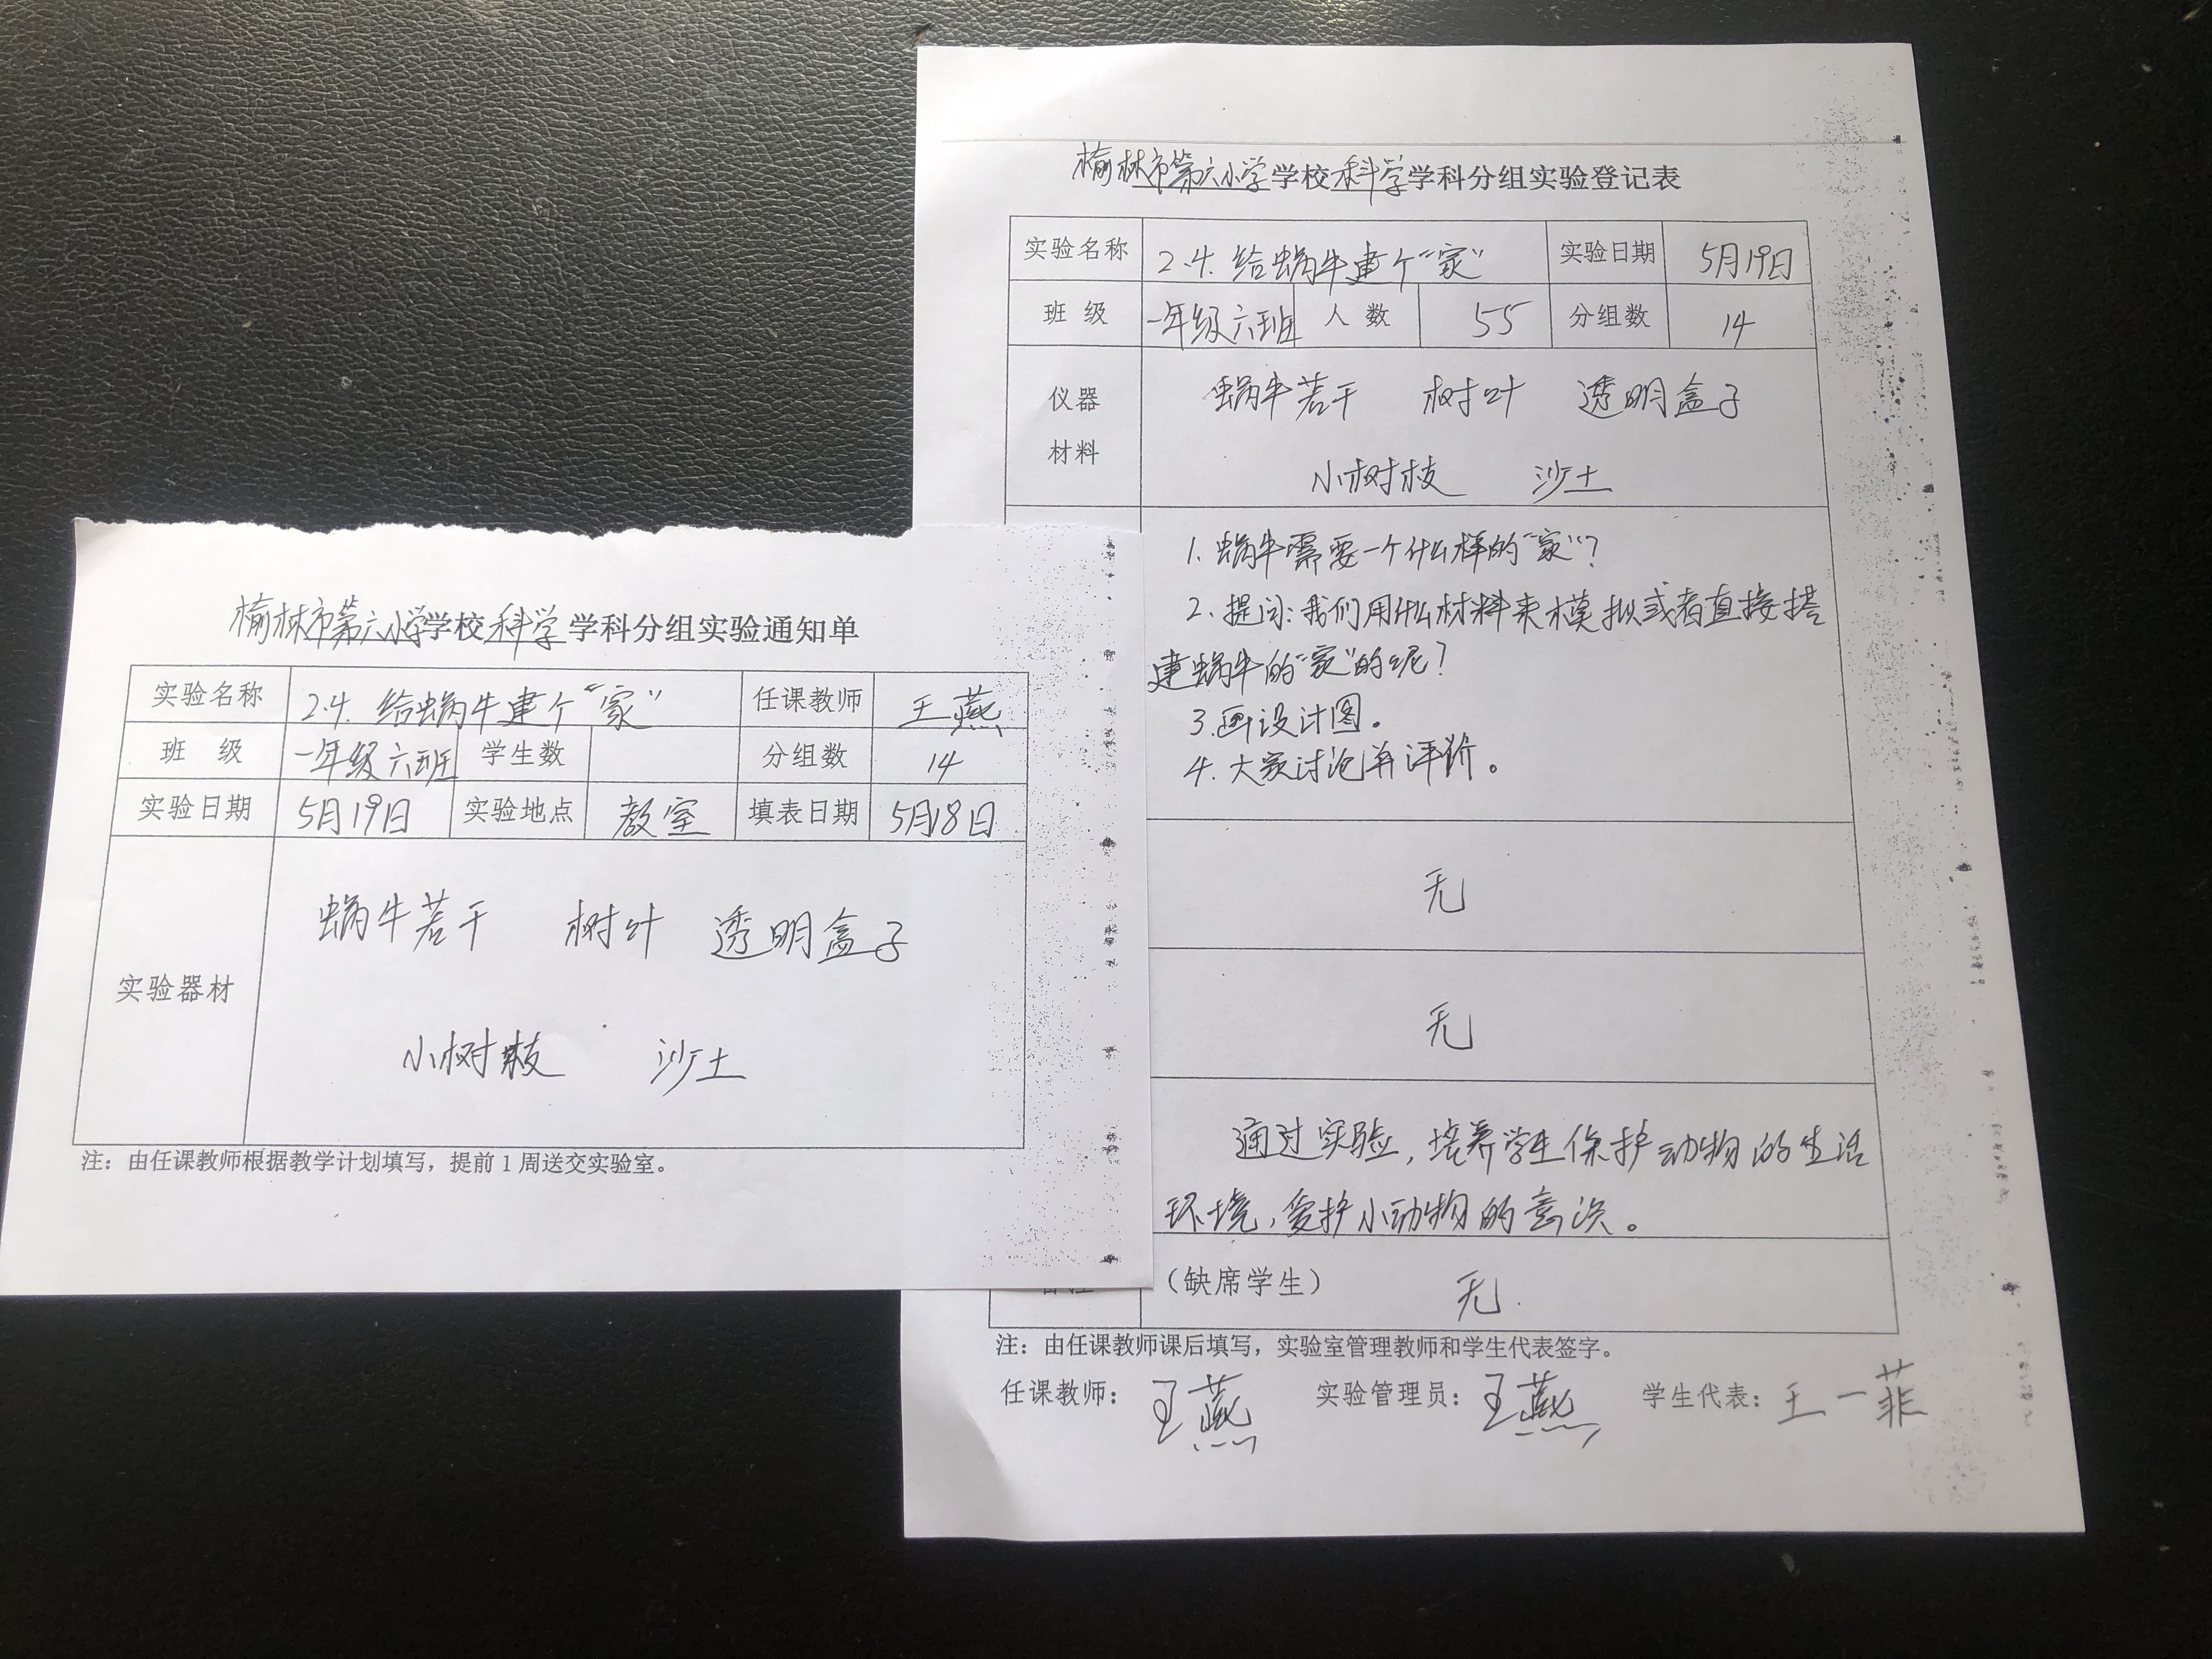 榆林市第六小学学校科学学科分组实验通知单
实验名称 2.4. 给蜗牛建个“家” 任课教师 王燕
班 级 一年级六班 学生数 分组数 14
实验日期 5月19日 实验地点 教室 填表日期 5月18日
实验器材
蜗牛若干 树叶 透明盒子
小树枝 沙土
注：由任课教师根据教学计划填写，提前1周送交实验室。
榆林市第六小学学校科学学科分组实验登记表
实验名称 2.4. 给蜗牛建个“家” 实验日期 5月19日
班 级 一年级六班 人 数 55 分组数 14
仪器
材料
蜗牛若干 树叶 透明盒子
小树枝 沙土
1. 蜗牛需要一个什么样的“家”？
2. 提问：我们用什么材料来模拟或者直接搭
建蜗牛的“家”的呢？
3.画设计图。
4. 大家讨论并评价。
无
无
通过实验，培养学生保护动物的生活
环境，爱护小动物的意识。
（缺席学生） 无.
注：由任课教师课后填写，实验室管理教师和学生代表签字。
任课教师：王燕 实验管理员：王燕 学生代表：王一菲